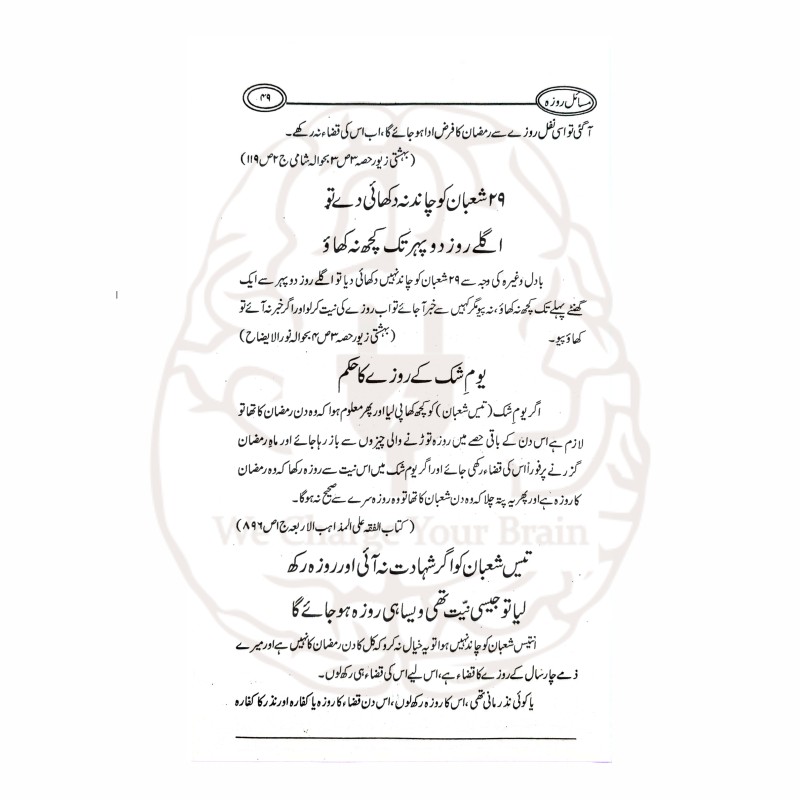 مسائل روزہ
۴۹
آگئی تو اسی نفل روزے سے رمضان کا فرض ادا ہو جائے گا، اب اس کی قضاء نہ رکھے۔
(بہشتی زیور حصہ ۳ ص ۳ بحوالہ شامی ج ۲ ص ۱۱۹)
۲۹ شعبان کو چاند نہ دکھائی دے تو
اگلے روز دوپہر تک کچھ نہ کھاؤ
بادل وغیرہ کی وجہ سے ۲۹ شعبان کو چاند نہیں دکھائی دیا تو اگلے روز دوپہر سے ایک
گھنٹے پہلے تک کچھ نہ کھاؤ، نہ پیو مگر کہیں سے خبر آجائے تو اب روزے کی نیت کرلو اور اگر خبر نہ آئے تو
کھاؤ پیو۔ (بہشتی زیور حصہ ۳ ص ۴ بحوالہ نورالایضاح)
یومِ شک کے روزے کا حکم
اگر یومِ شک (تیس شعبان) کو کچھ کھا پی لیا اور پھر معلوم ہوا کہ وہ دن رمضان کا تھا تو
لازم ہے اس دن کے باقی حصے میں روزہ توڑنے والی چیزوں سے باز رہا جائے اور ماہِ رمضان
گزرنے پر فوراً اس کی قضاء رکھی جائے اور اگر یوم شک میں اس نیت سے روزہ رکھا کہ وہ رمضان
کا روزہ ہے اور پھر یہ پتہ چلا کہ وہ دن شعبان کا تھا تو وہ روزہ سرے سے صحیح نہ ہوگا۔
(کتاب الفقہ علی المذاہب الاربعہ ج ۱ ص ۸۹۶)
We Change Your Brain
تیس شعبان کو اگر شہادت نہ آئی اور روزہ رکھ
لیا تو جیسی نیّت تھی ویسا ہی روزہ ہو جائے گا
انتیس شعبان کو چاند نہیں ہوا تو یہ خیال نہ کرو کہ کل کا دن رمضان کا نہیں ہے اور میرے
ذمے چار سال کے روزے کا قضاء ہے، اس لیے اس کی قضاء ہی رکھ لوں۔
یا کوئی نذر مانی تھی، اس کا روزہ رکھ لوں، اس دن قضاء کا روزہ یا کفارہ اور نذر کا کفارہ